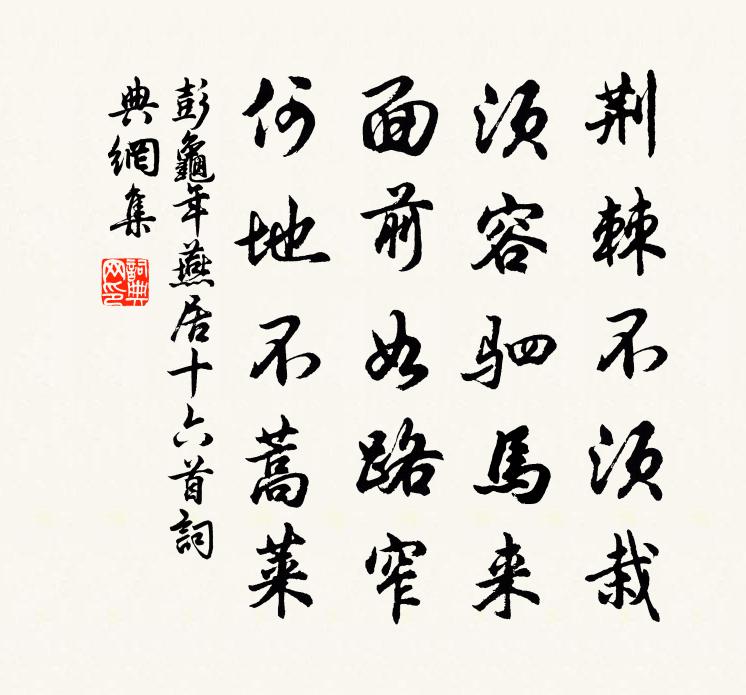 荆棘不须栽
须容驷馬来
面前如路窄
何地不蒿萊
彭龜年燕居十六首詞
典網集
詞典网印